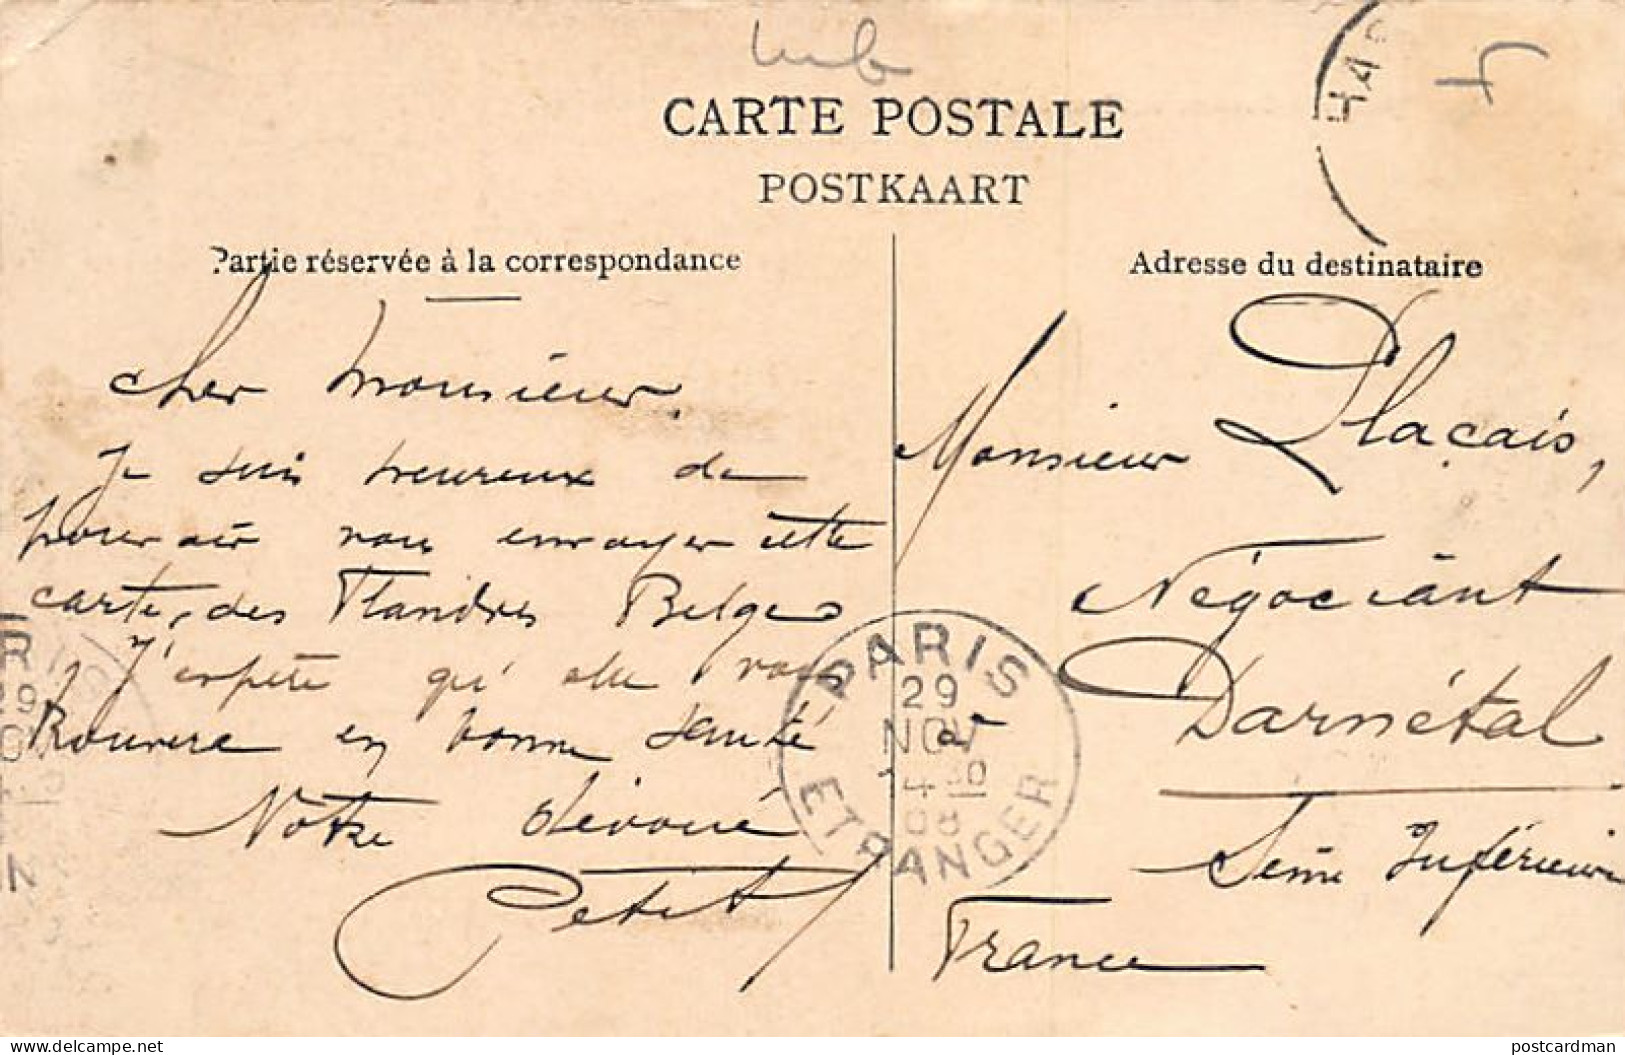 CARTE POSTALE
POSTKAART
Partie réservée à la correspondance
Cher Monsieur,
Je suis heureux de
pouvoir vous envoyer cette
carte, des Flandres Belges
J'espère qu'elle vous
trouvera en bonne santé
Votre dévoué
Petit
Adresse du destinataire
Monsieur Plaçais,
Négociant
à
Darnétal
Seine Inférieure
France
PARIS
29
NOV
08
ETRANGER
delcampe.net
postcardman